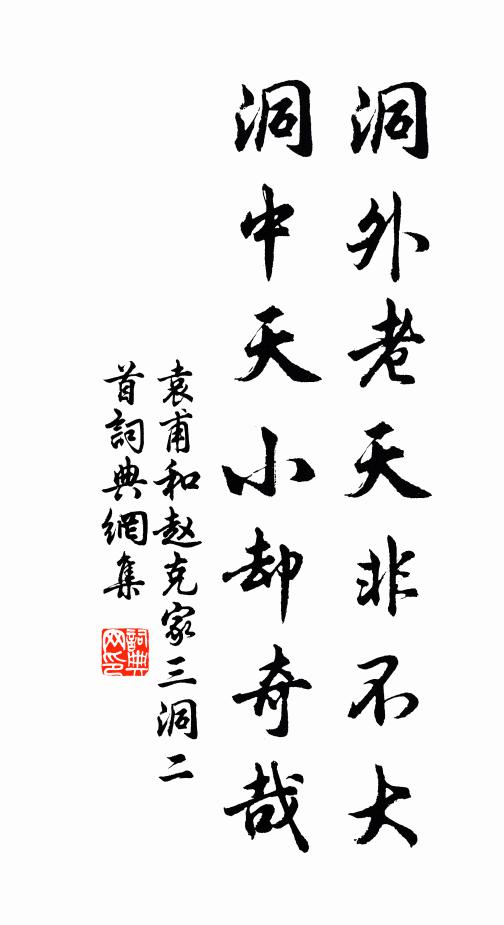 洞外老天非不大
洞中天小却奇哉
袁甫和赵克家三洞二
首詞典網集
詞典
网印